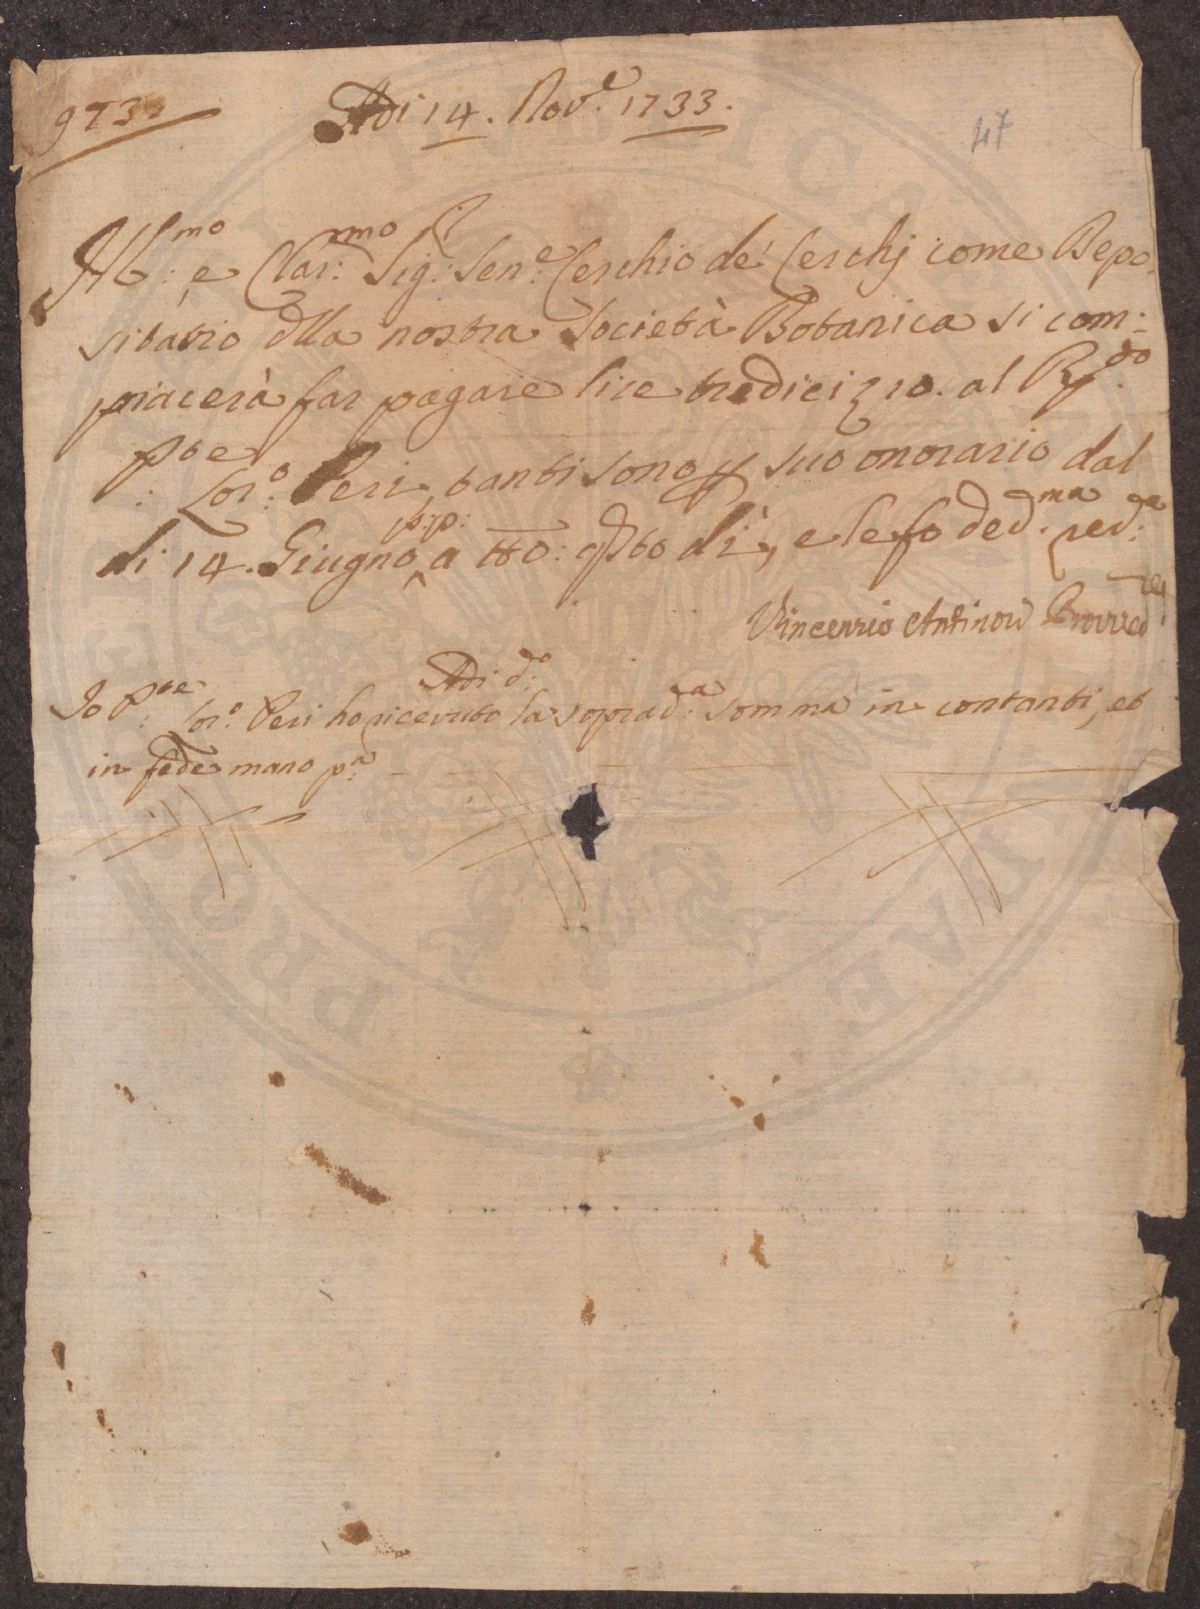 Adi 14. Nov.e 1733.
47
Ill.mo e Clar.mo Sig. Sen.e Cerchio de' Cerchj come Depo-
sitario dlla nostra Società Botanica si com:
piacerà far pagare lire tredici 10. al R.do
P.te Lor.o Peri, tanti sono p suo onorario dal
dì 14. Giugno p:p: a tto: qsto dì, e le fo ded.ma rev.a
Vincenzio Antinori Provved.re
Adi d.o
Io P.te Lor.o Peri ho ricevuto la soprad.a somma in contanti, et
in fede mano p.a
PRO PVBLICAE VTILITATE